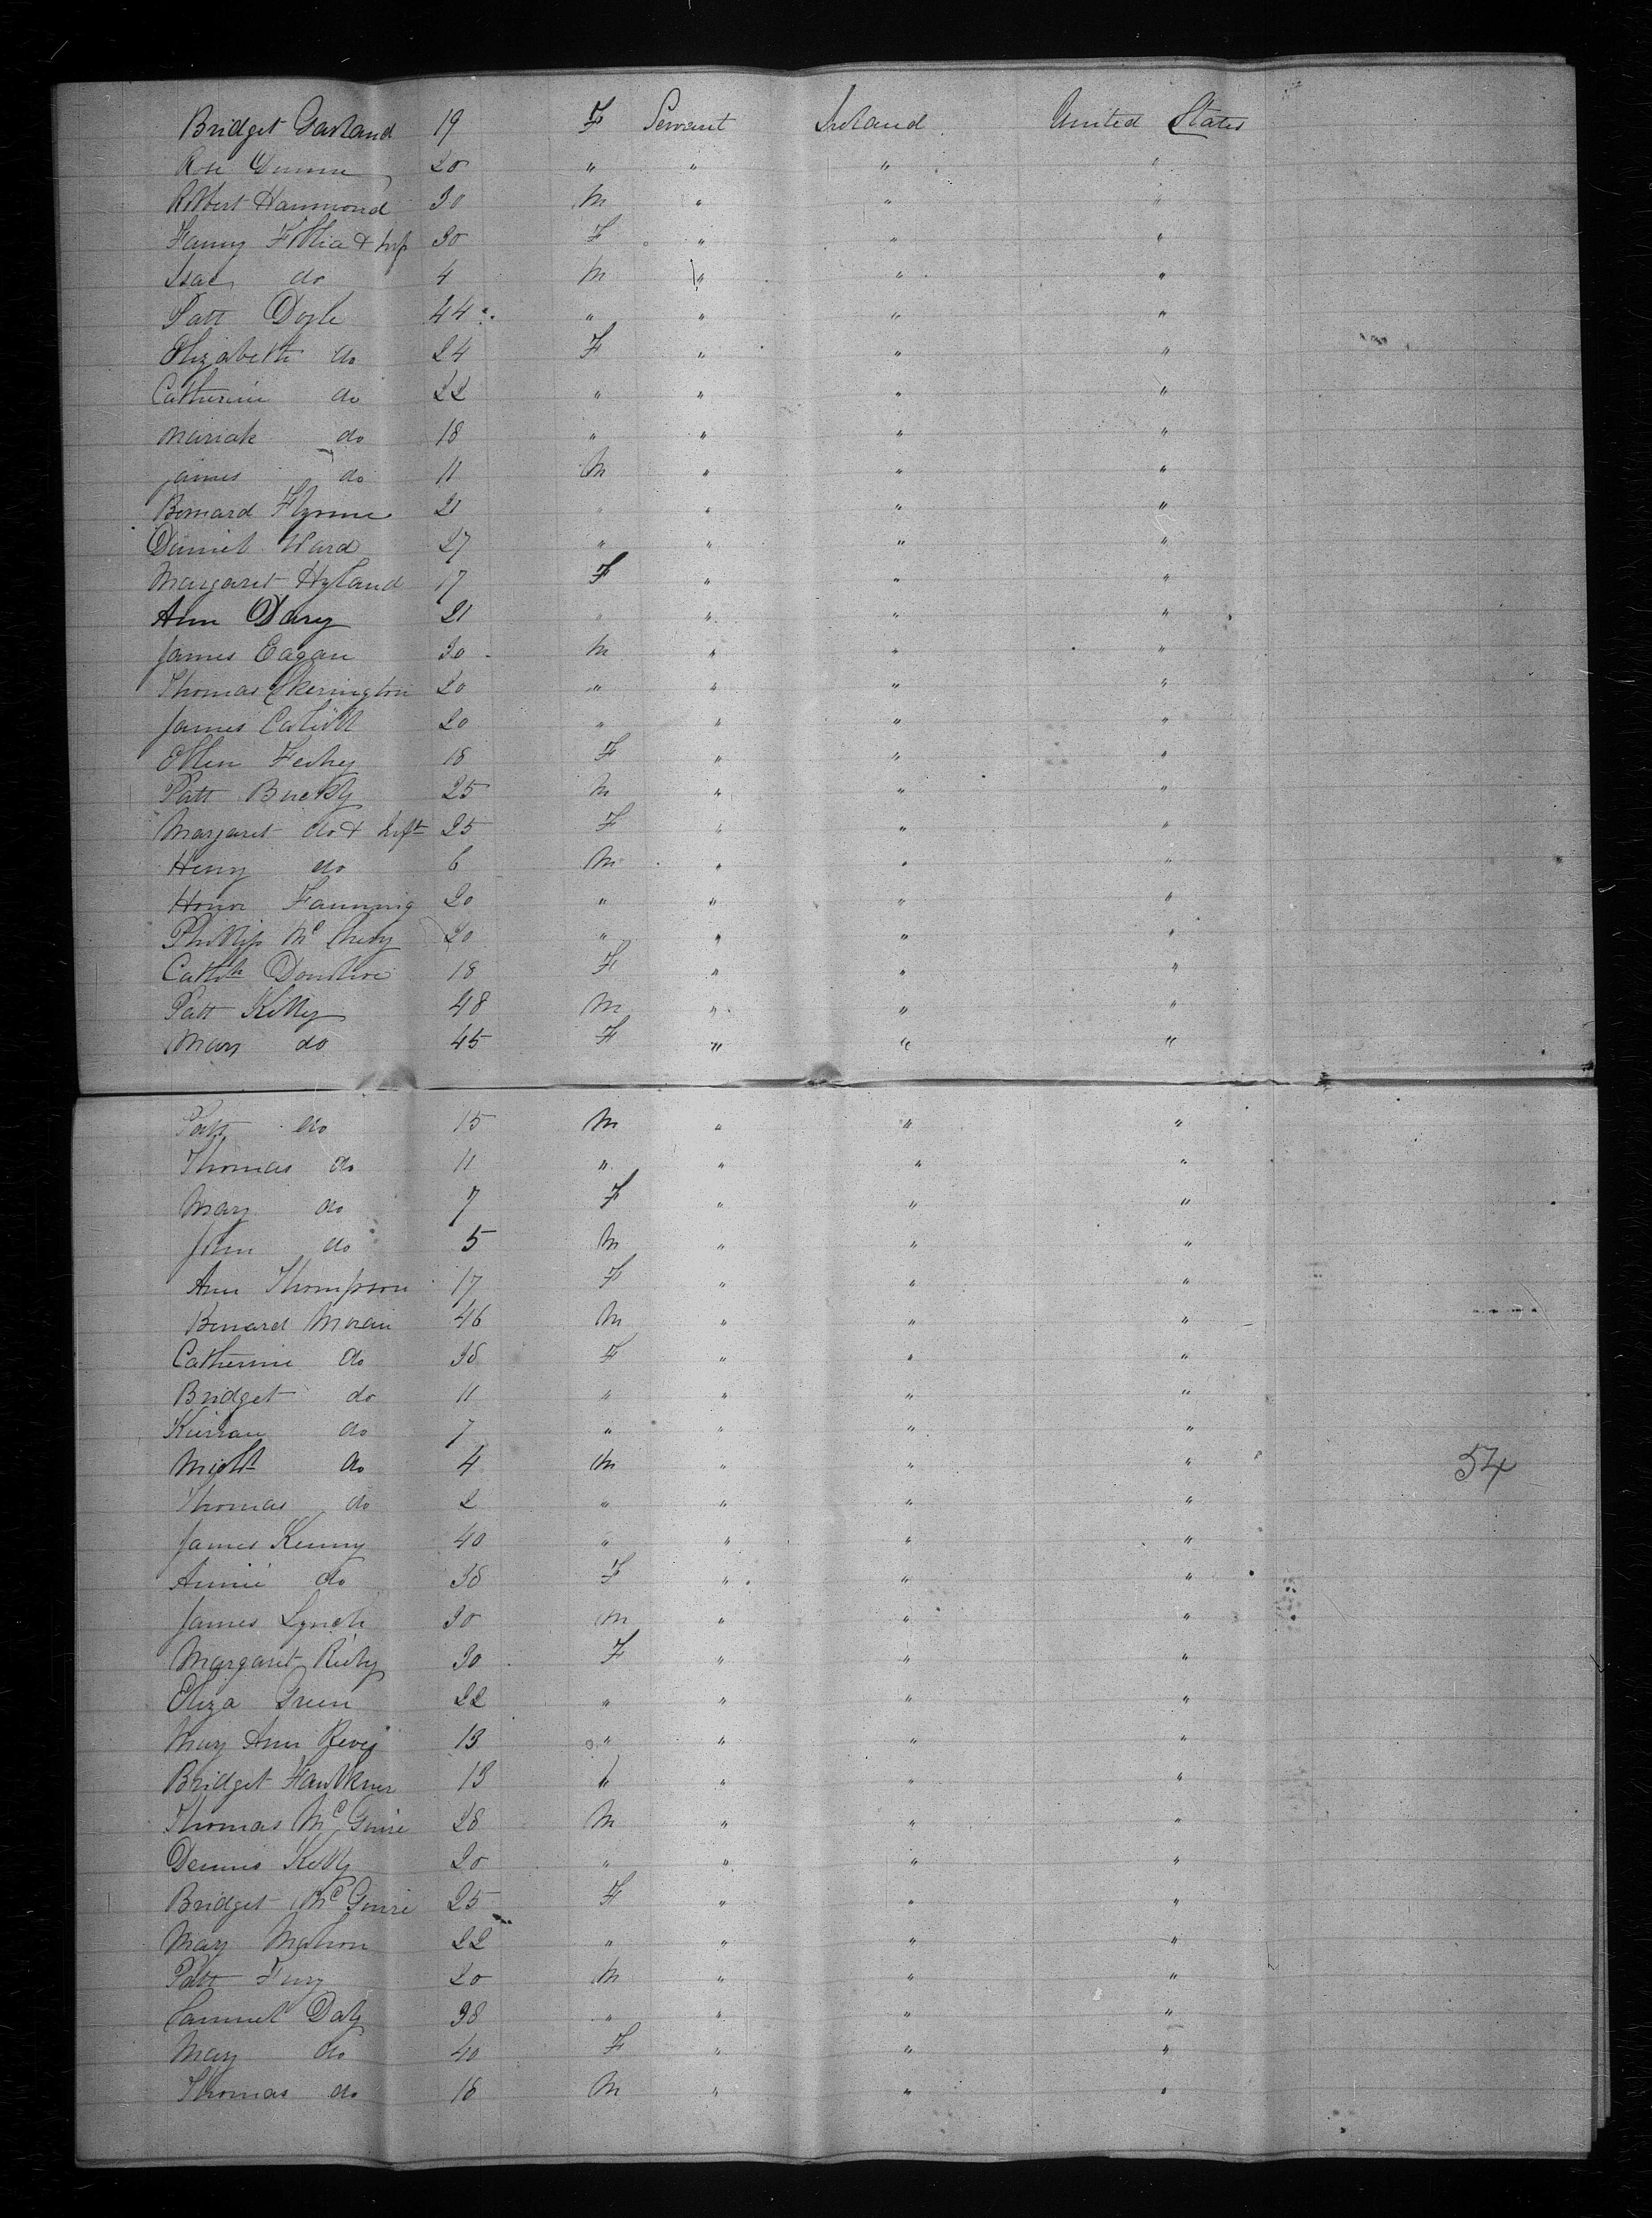 Bridget Garland 19 F Servant Ireland United States
Rose Dunne 20 " " " "
Robert Hammond 30 M " " "
Fanny & Inf 30 F " " "
Isac do 4 M " " "
Patt Doyle 44 " " " "
Elizabeth do 24 F " " "
Catherine do 22 " " " "
Mariah do 18 " " " "
James do 11 M " " "
Bernard Flynne 21 " " " "
Daniel Ward 27 " " " "
Margaret Hyland 17 F " " "
Ann Dary 21 " " " "
James Eagan 30 M " " "
Thomas Skerington 20 " " " "
James 20 " " " "
Ellen Feehy 18 F " " "
Patt Buckly 25 M " " "
Margaret do & Inft 25 F " " "
Henry do 6 M " " "
Honor Fanning 20 " " " "
Phillip Mc 20 " " " "
Cathh Donohoe 18 F " " "
Patt Killy 48 M " " "
Mary do 45 F " " "
Patt do 15 M " " "
Thomas do 11 " " " "
Mary do 7 F " " "
John do 5 M " " "
Ann Thompson 17 F " " "
Benard Moran 46 M " " "
Catherine do 38 F " " "
Bridget do 11 " " " "
Kieran do 7 " " " "
Michl do 4 M " " "
54
Thomas do 2 " " " "
James Kenny 40 " " " "
Annie do 38 F " " "
James Lynch 30 M " " "
Margaret Rieby 30 F " " "
Eliza Green 22 " " " "
Mary Ann 13 " " " "
Bridget Faulkner 13 " " " "
Thomas McGuire 28 M " " "
Dennis Kelly 20 " " " "
Bridget McGuire 25 F " " "
Mary Mahon 22 " " " "
Patt Fury 20 M " " "
Samuel Daly 38 " " " "
Mary do 40 F " " "
Thomas do 18 M " " "